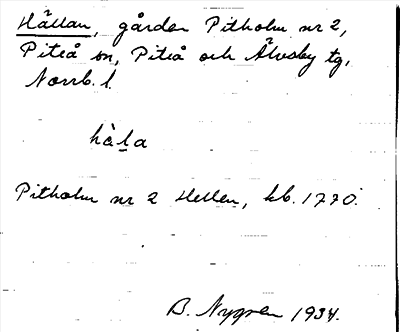 Hällan, gården Pitholm nr 2,
Piteå sn, Piteå och Älvsby tg,
Norrb. l.
hà̀la
Pitholm nr 2 Hellen, kb. 1770.
B. Nygren 1934.